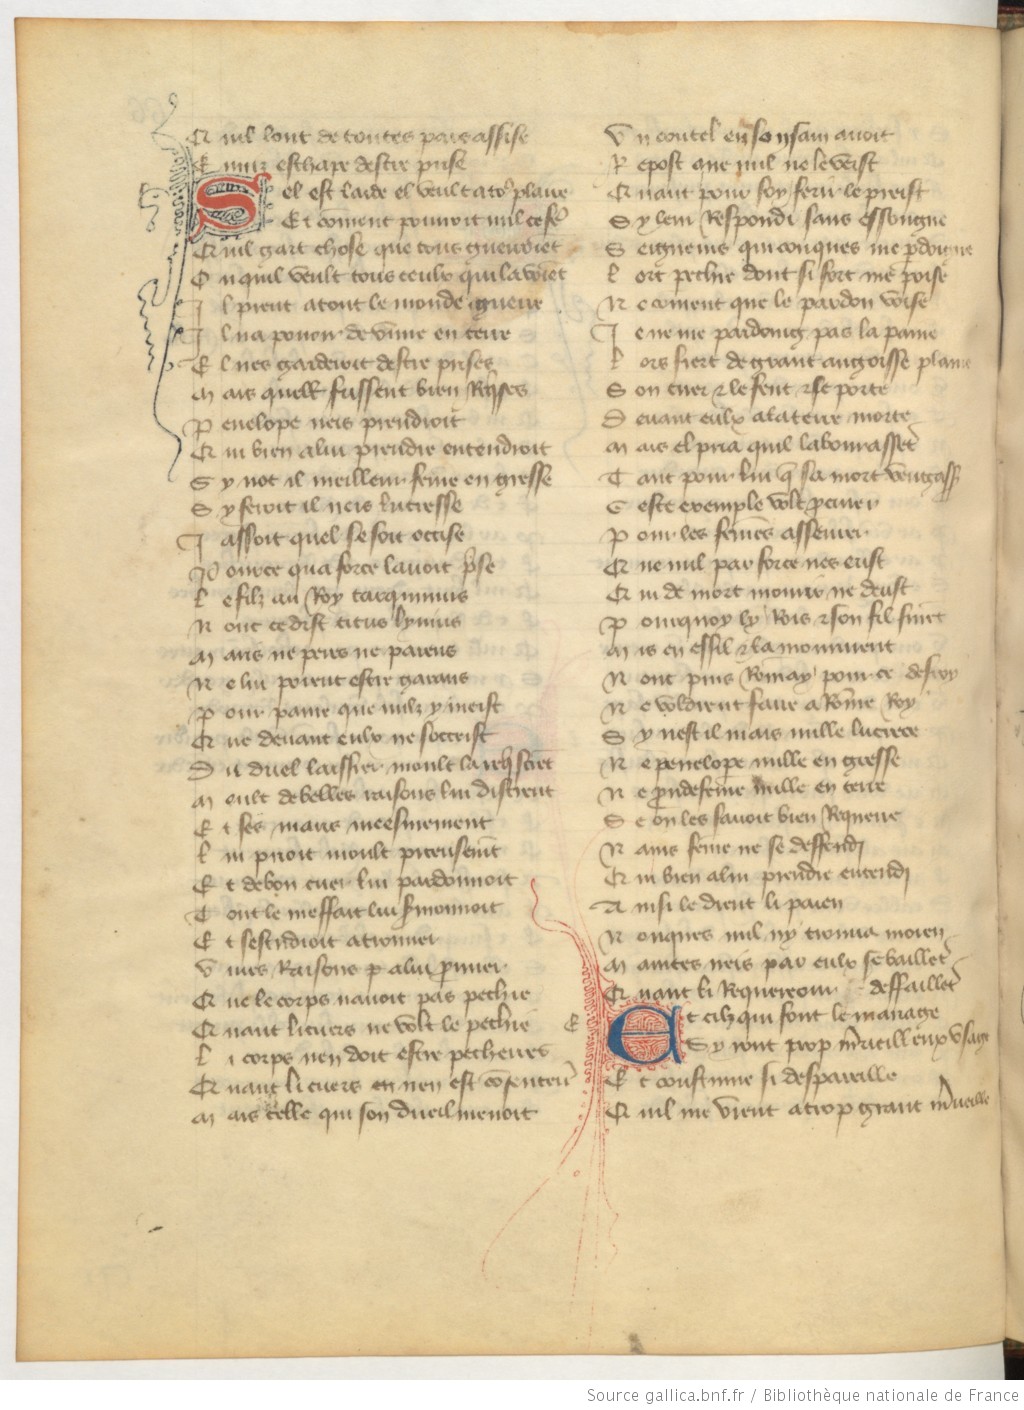 Q uil lont de toutes pars assise
E nuiz eschape destre prise
S el est laide el veult a to9 plaire
Et coment pourroit nul ce fe
Q uil gart chose que tous guerroiet
O u quil veult tous ceulx qui la voiet
I l prent a tout le monde guerre
I l na pouoir de viure en terre
E l nes garderoit destre prises
M ais quelles fussent bien Requises
P enelope neis prendroit
Q ui bien a lui prendre entendroit
S y not il meilleur feme en gresse
S y feroit il neis lucresse
I assoit quel se soit occise
P ource qua force lauoit prise
L e filz au Roy tarquinius
N ont ce dist titus lyuius
M aris ne peres ne parens
N e lui porent estre garans
P our paine que nulz y meist
Q ue deuant eulx ne socceist
D u duel laissier moult la requistrent
M oult de belles raisons lui distrent
E t ses maris meesmement
L ui prioit moult piteusemt
E t de bon cuer lui pardonnoit
T out le meffait lui sermonnoit
E t sestudioit a trouuer
V iues Raisons pour a lui prouuer
Q ue le corps nauoit pas pechie
Q uant li cuers ne volt le pechie
L i corps nen doit estre pecheurs
Q uant li cuers en nen est consenteur
M ais celle qui son dueil menoit
V n coutel en son sain auoit
R epost que nul ne le veist
Q uant pour soy ferir le preist
S y leur Respondi sans essongne
S eigneurs qui conques me pdoigne
L ort pechie dont si fort me poise
N e coment que le pardon voise
I e ne me pardoing pas la paine
L ors fiert de grant angoisse plaine
S on cuer et le fent et se porte
D euant eulx a la terre morte
M ais el pria quil labourasset
T ant pour lui q sa mort vengasset
C este exemple volt procurer
P our les femes asseurer
Q ue nul par force nes eust
Q ui de mort mourir ne deust
P ourquoy ly Rois et son fil furet
M is en essil et la moururent
N ont puis Romay pour ce desroy
N e voldrent faire a Rome Roy
S y nest il mais nulle lucrece
N e penelope nulle en gresse
N e prudefeme nulle en terre
S e on les sauoit bien Requerre
N ains feme ne se deffendi
Q ui bien a lui prendre entendi
A insi le dient li paien
N onques nul ny trouua moien
M aintes neis par eulx se baillet
Q uant li Requereour deffaillet
E t cilz qui font le mariage
Sy ront trop merueilleux vsage
E t coustume si despareille
Q uil me vient a trop grant merueille
Source gallica.bnf.fr / Bibliothèque nationale de France